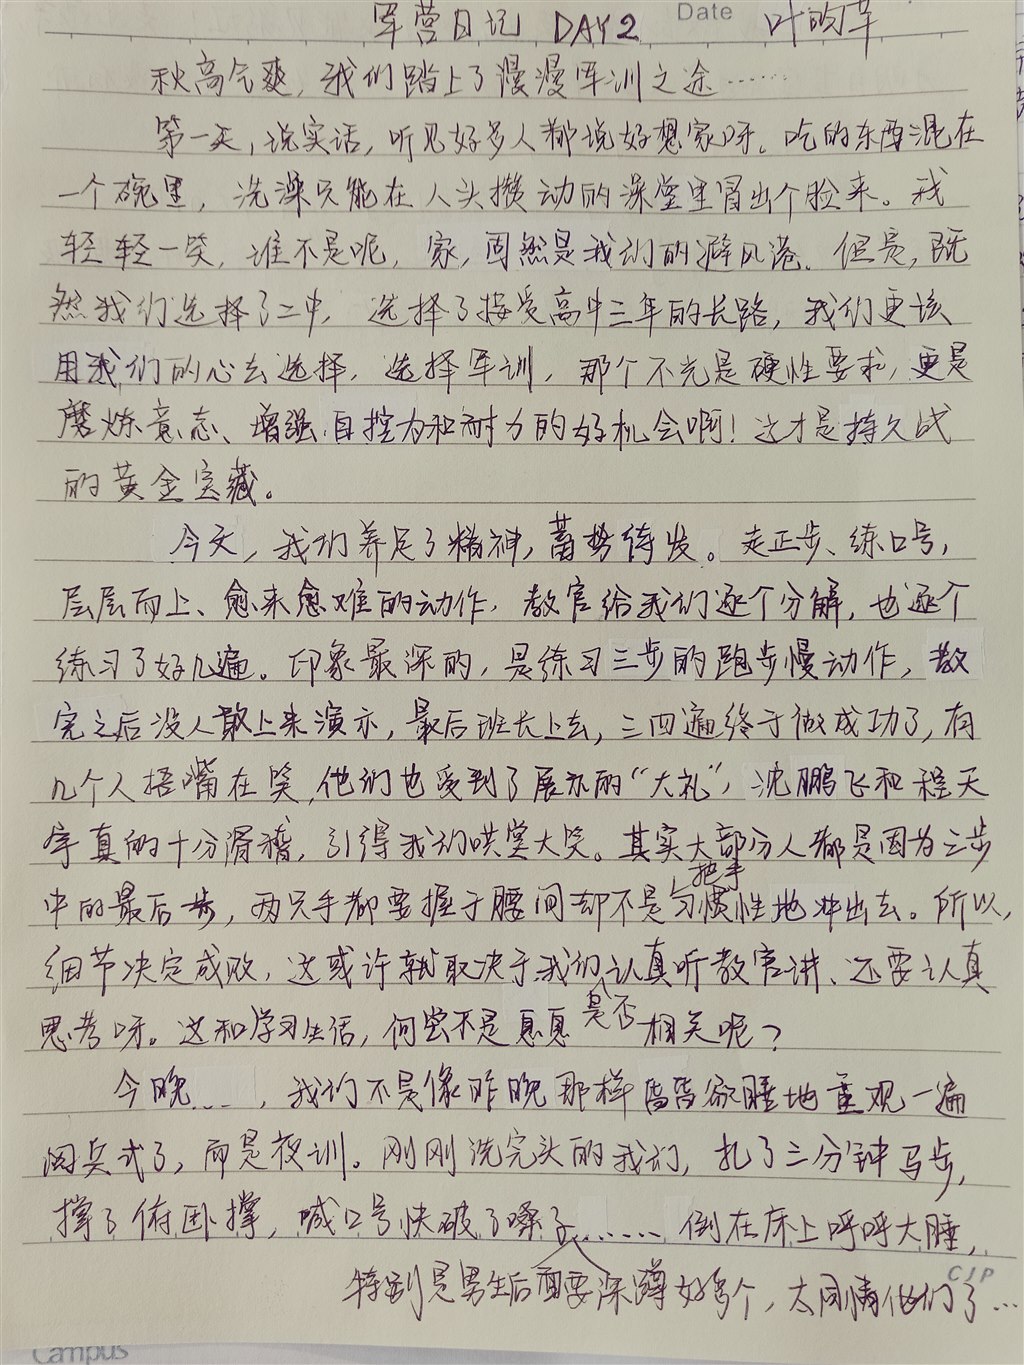 军营日记 DAY2 Date 叶的苹
秋高气爽，我们踏上了漫漫军训之途……
第一天，说实话，听见好多人都说好想家呀。吃的东西混在
一个碗里，洗澡只能在人头攒动的澡堂里冒出个脸来。我
轻轻一笑，谁不是呢，家，固然是我们的避风港。但是，既
然我们选择了二中，选择了接受高中三年的长路，我们更该
用我们的心去选择，选择军训，那个不光是硬性要求，更是
磨炼意志、增强自控力和耐力的好机会啊！这才是持久战
的黄金宝藏。
今天，我们养足了精神，蓄势待发。走正步、练口号，
层层而上、愈来愈难的动作，教官给我们逐个分解，也逐个
练习了好几遍。印象最深的，是练习三步的跑步慢动作，教
完之后没人敢上来演示，最后班长上去，三四遍终于做成功了，有
几个人捂嘴在笑，他们也受到了展示的“大礼”，沈鹏飞和程天
宇真的十分滑稽，引得我们哄堂大笑。其实大部分人都是因为三步
中的最后一步，两只手都要握于腰间却不是把手习惯性地冲出去。所以，
细节决定成败，这或许就取决于我们是否认真听教官讲、还要认真
思考呀。这和学习生活，何尝不是息息相关呢？
今晚……，我们不是像昨晚那样昏昏欲睡地重观一遍
阅兵式了，而是夜训。刚刚洗完头的我们，扎了三分钟马步，
撑了俯卧撑，喊口号快破了嗓子……倒在床上呼呼大睡，
特别是男生后面要深蹲好多个，太同情他们了…
CJP
Campus